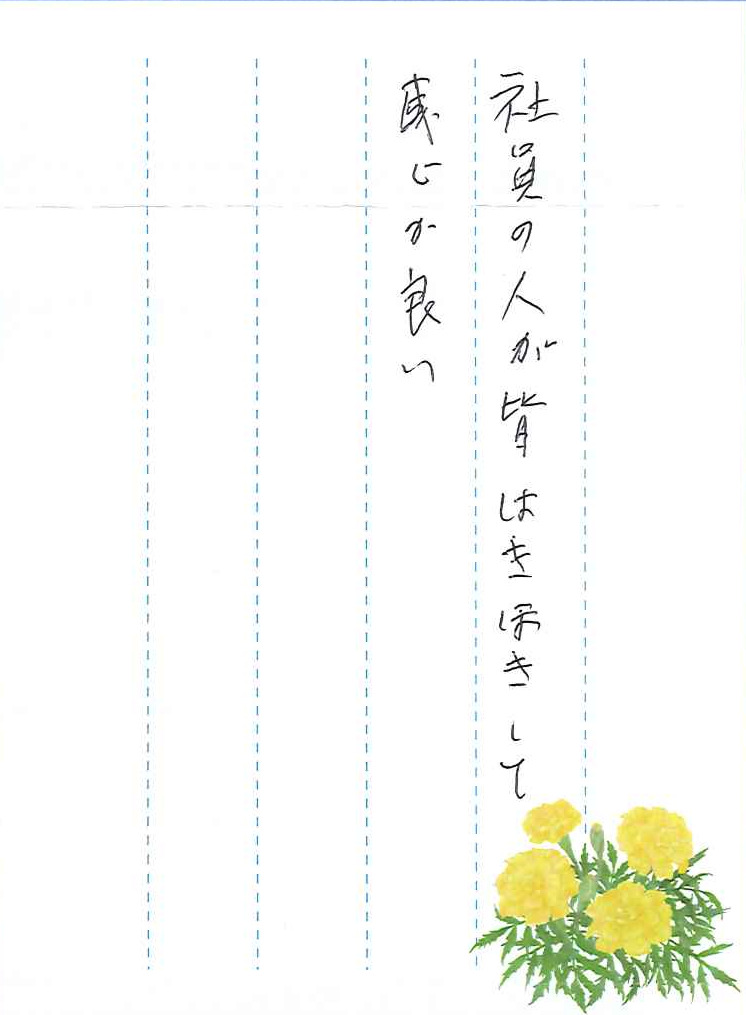 社員の人が皆はきはきして
感じが良い